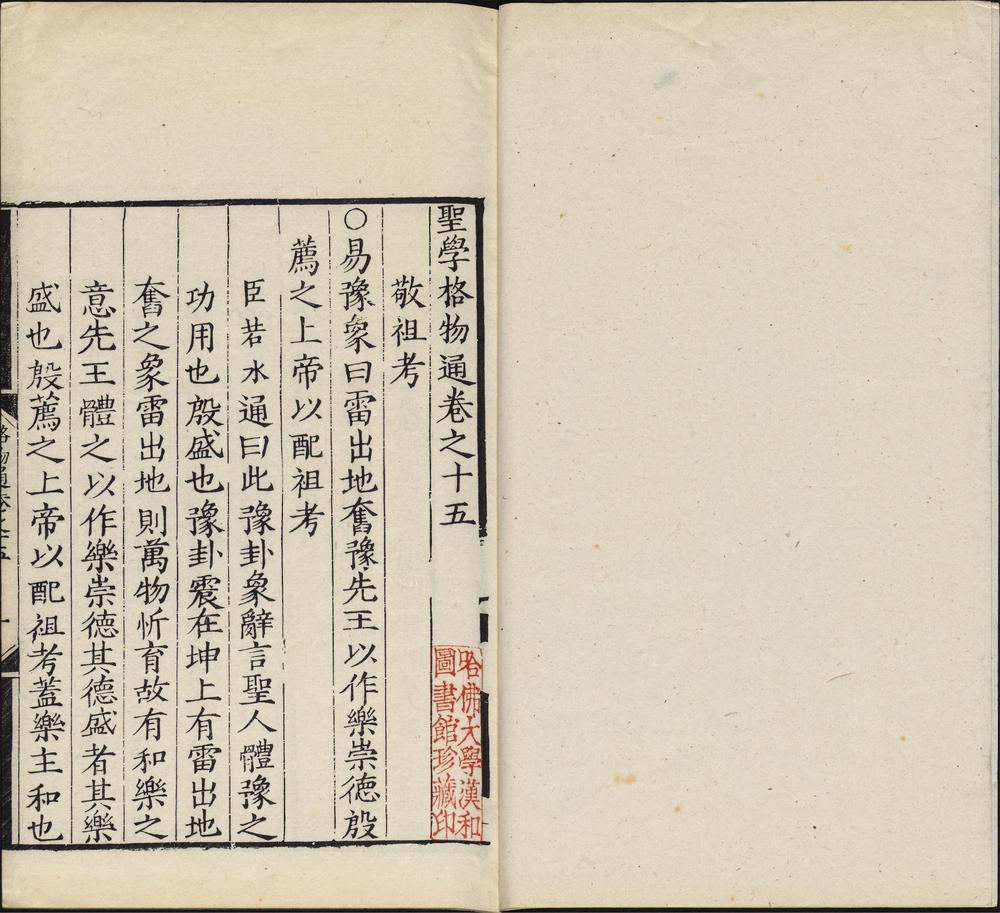 聖學格物通卷之十五
敬祖考
○易豫象曰雷出地奮豫先王以作樂崇德殷
薦之上帝以配祖考
臣若水通曰此豫卦象辭言聖人體豫之
功用也殷盛也豫卦震在坤上有雷出地
奮之象雷出地則萬物忻育故有和樂之
意先王體之以作樂崇德其德盛者其樂
盛也殷薦之上帝以配祖考蓋樂主和也
格物通卷之十五
一
哈佛大學漢和
圖書館珍藏印